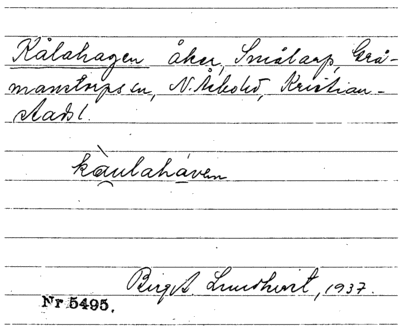 Kålahagen åker, Smålarp, Grå-
manstorps sn, N. Åsbo hd, Kristian-
stads l.
kàulahaven
Birgit Lundkvist, 1937.
Nr 5495.